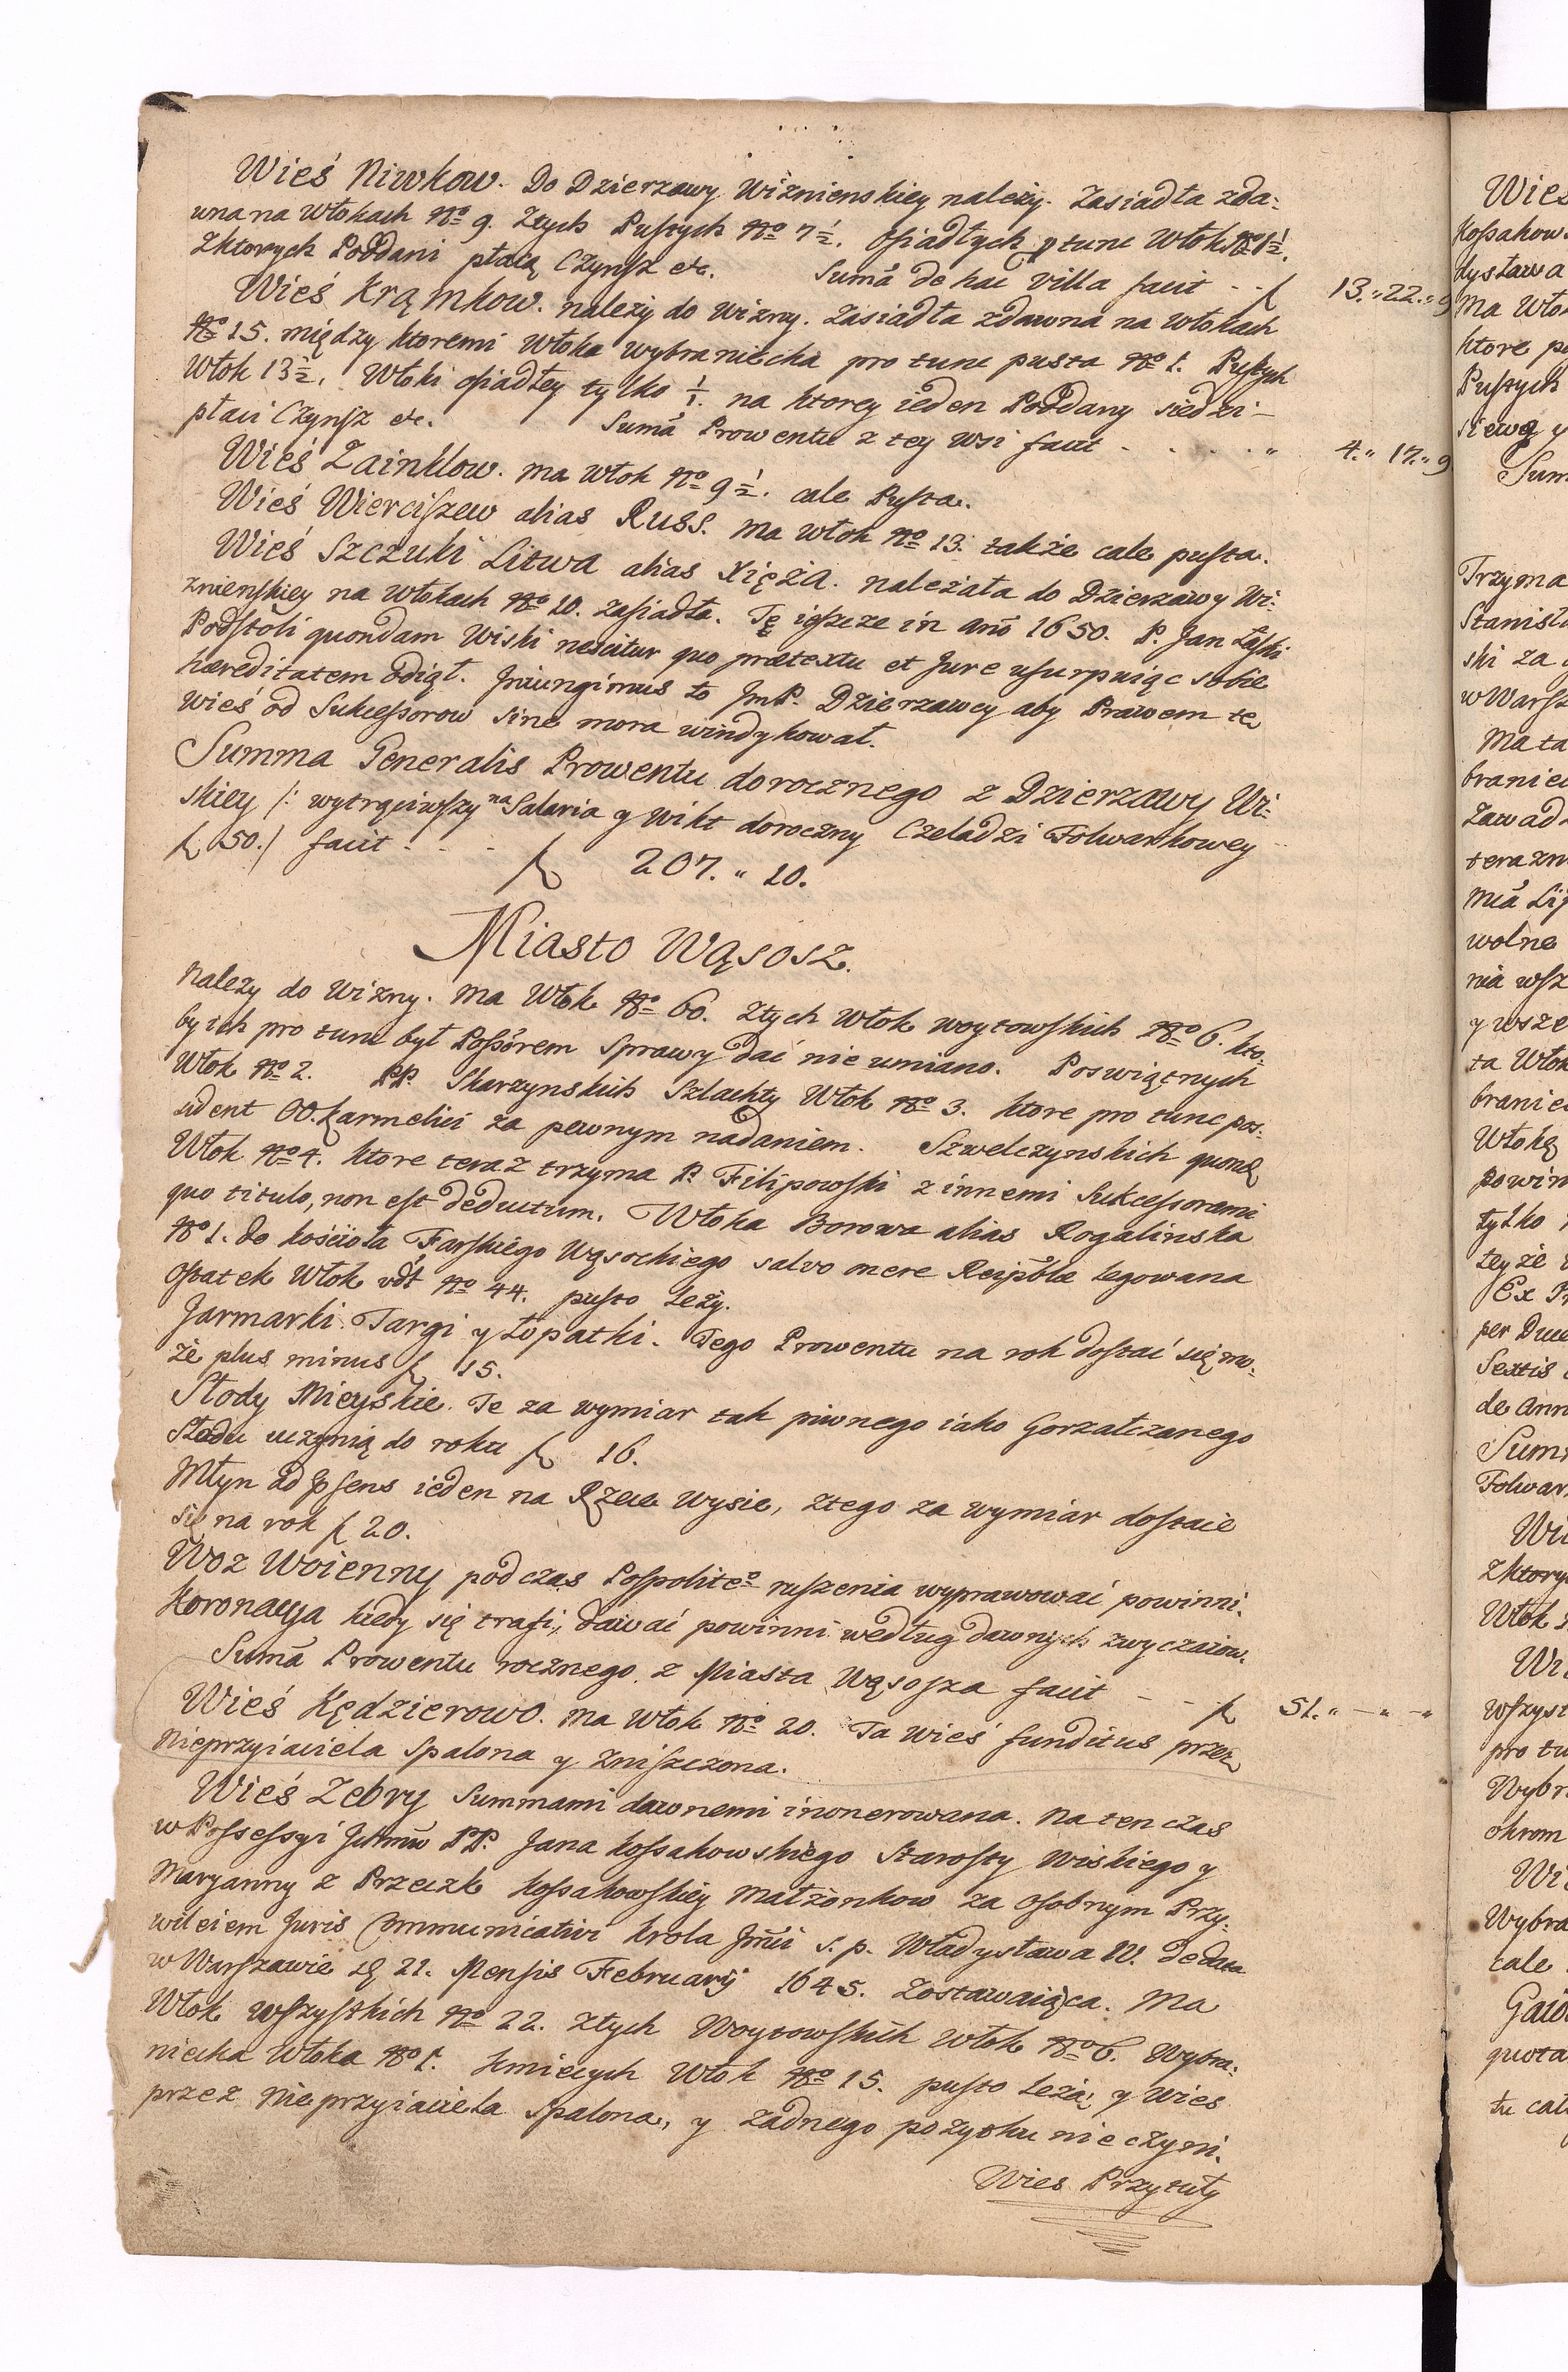 Wieś Niwkow. Do Dzierzawy Wiżnienskiey należy. Zasiadła zda:
wna na Włokach No 9. Ztych Pustych No 7½. Osiadłych p tunc Włok No 1½.
Zktorych Poddani płacą Czynsz etc. Suma de hac villa facit - - f 13.„22.„9
Wieś Krąmkow. należy do Wizny. Zasiadła zdawna na Włokach
No 15. między ktoremi Włoka wybraniecka pro tunc pusta No 1. Pustych
Włok 13½. Włoki osiadłey tylko ½. na ktorey ieden Poddany siedzi
płaci Czynsz etc. Suma Prowentu z tey wsi facit - - - - „ 4.„ 17.„9
Wieś Zainklow. ma Włok No 9½. cale Pusta.
Wieś Wierciszew alias Russ. ma Włok No 13. także cale pusta.
Wieś Szczuki Litwa alias Xięża. należała do Dzierzawy Wi:
znienskiey na Włokach No 10. zasiadła. Tę ieszcze in Ano 1650. P. Jan Łęski
Podstoli quondam Wiski nescitur quo prætextu et Jure usurpuiąc sobie
hæreditatem odiął. Iniungimus to JmP. Dzierzawcy aby Prawem tę
wieś od Sukcessorow sine mora windykował.
Summa Generalis Prowentu dorocznego z Dzierzawy Wi:
skiey /: wytrąciwszy na Salaria y Wikt doroczny Czeladzi Folwarkowey
f 50./ facit - - - f 207. „ 10.
Miasto Wąsosz.
Należy do Wizny. Ma Włok No 60. Ztych Włok woytowskich No 6. kto:
by ich pro tunc był Possorem sprawy dać nie umiano. Poswiątnych
Włok No 2. PP. Skarzynskich Szlachty Włok No 3. ktore pro tunc pos:
sident OO. Karmelici za pewnym nadaniem. Szwelczynskich quond
Włok No 4. ktore teraz trzyma P. Filipowski z innemi Sukcessorami
quo titulo, non est deductum. Włoka Borowa alias Rogalinska
No 1. do kościoła Farskiego Wąsockiego salvo onere Reipblæ legowana
Ostatek Włok vdt No 44. pusto leży.
Jarmarki. Targi y Łopatki. Tego Prowentu na rok dostać się mo:
że plus minus f 15.
Słody Mieyskie. Te za wymiar tak piwnego iako Gorzałczanego
Słodu uczynią do roku f 16.
Młyn ad psens ieden na Rzece Wysie, ztego za wymiar dostaie
się na rok f 20.
Woz Woienny podczas Pospoliteo ruszenia wyprawować powinni.
Koronacya kiedy się trafi, dawać powinni według dawnych zwyczaiow.
Suma Prowentu rocznego z Miasta Wąsosza facit - - f 51.„ - „ - „
Wieś Kędzierowo. ma Włok No 20. Ta wieś funditus przez
Nieprzyiaciela spalona y zniszczona.
Wieś Zebry Summami dawnemi inonerowana. Na ten czas
w Possessyi Jchmw PP. Jana Kossakowskiego Starosty Wiskiego y
Maryanny z Przeczk Kossakowskiey Małżonkow za osobnym Przy:
wileiem Juris Communicativi Krola Jmci s. p. Władysława IV. de data
w Warszawie d 21. Mensis Februarij 1645. Zostawaiąca. Ma
Włok wszystkich No 22. Ztych Woytowskich Włok No 6. Wybra:
niecka Włoka No 1. Kmiecych Włok No 15. pusto leżą y Wies
przez Nieprzyiaciela spalona, y zadnego pozytku nie czyni.
Wies Przytuły